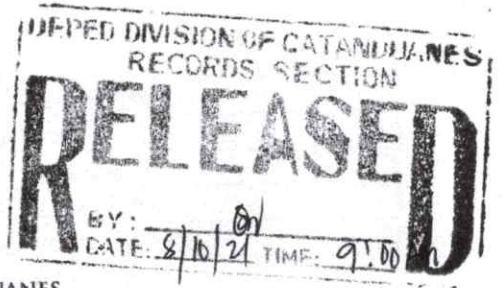 DEPED DIVISION OF CATANDUANES
RECORDS SECTION
RELEASED
BY:
DATE: 8/10/21 TIME: 9:00